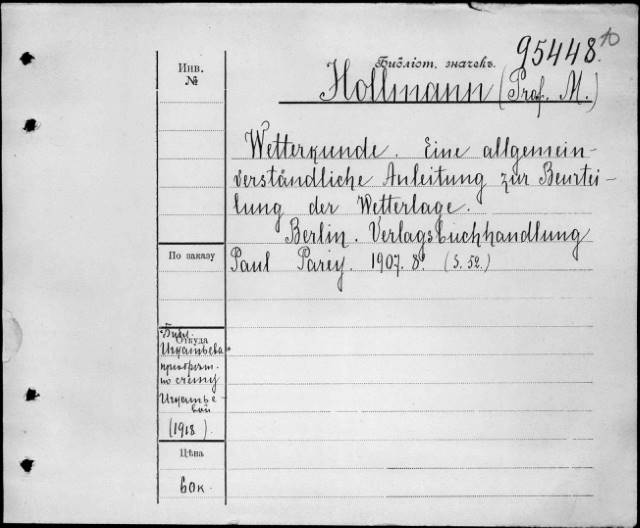 95448 10
Инв.
№
Библіот. значекъ.
Hollmann (Prof. M.)
Wetterkunde. Eine allgemein-
verständliche Anleitung zur Beurtei-
lung der Wetterlage.
Berlin. Verlagsbuchhandlung
По заказу
Paul Parey. 1907. 8. (S. 52.)
Откуда
Библ.
Игнатьева
приобрѣт.
по счету
Игнатье-
вой
(1918).
Цѣна
60к.